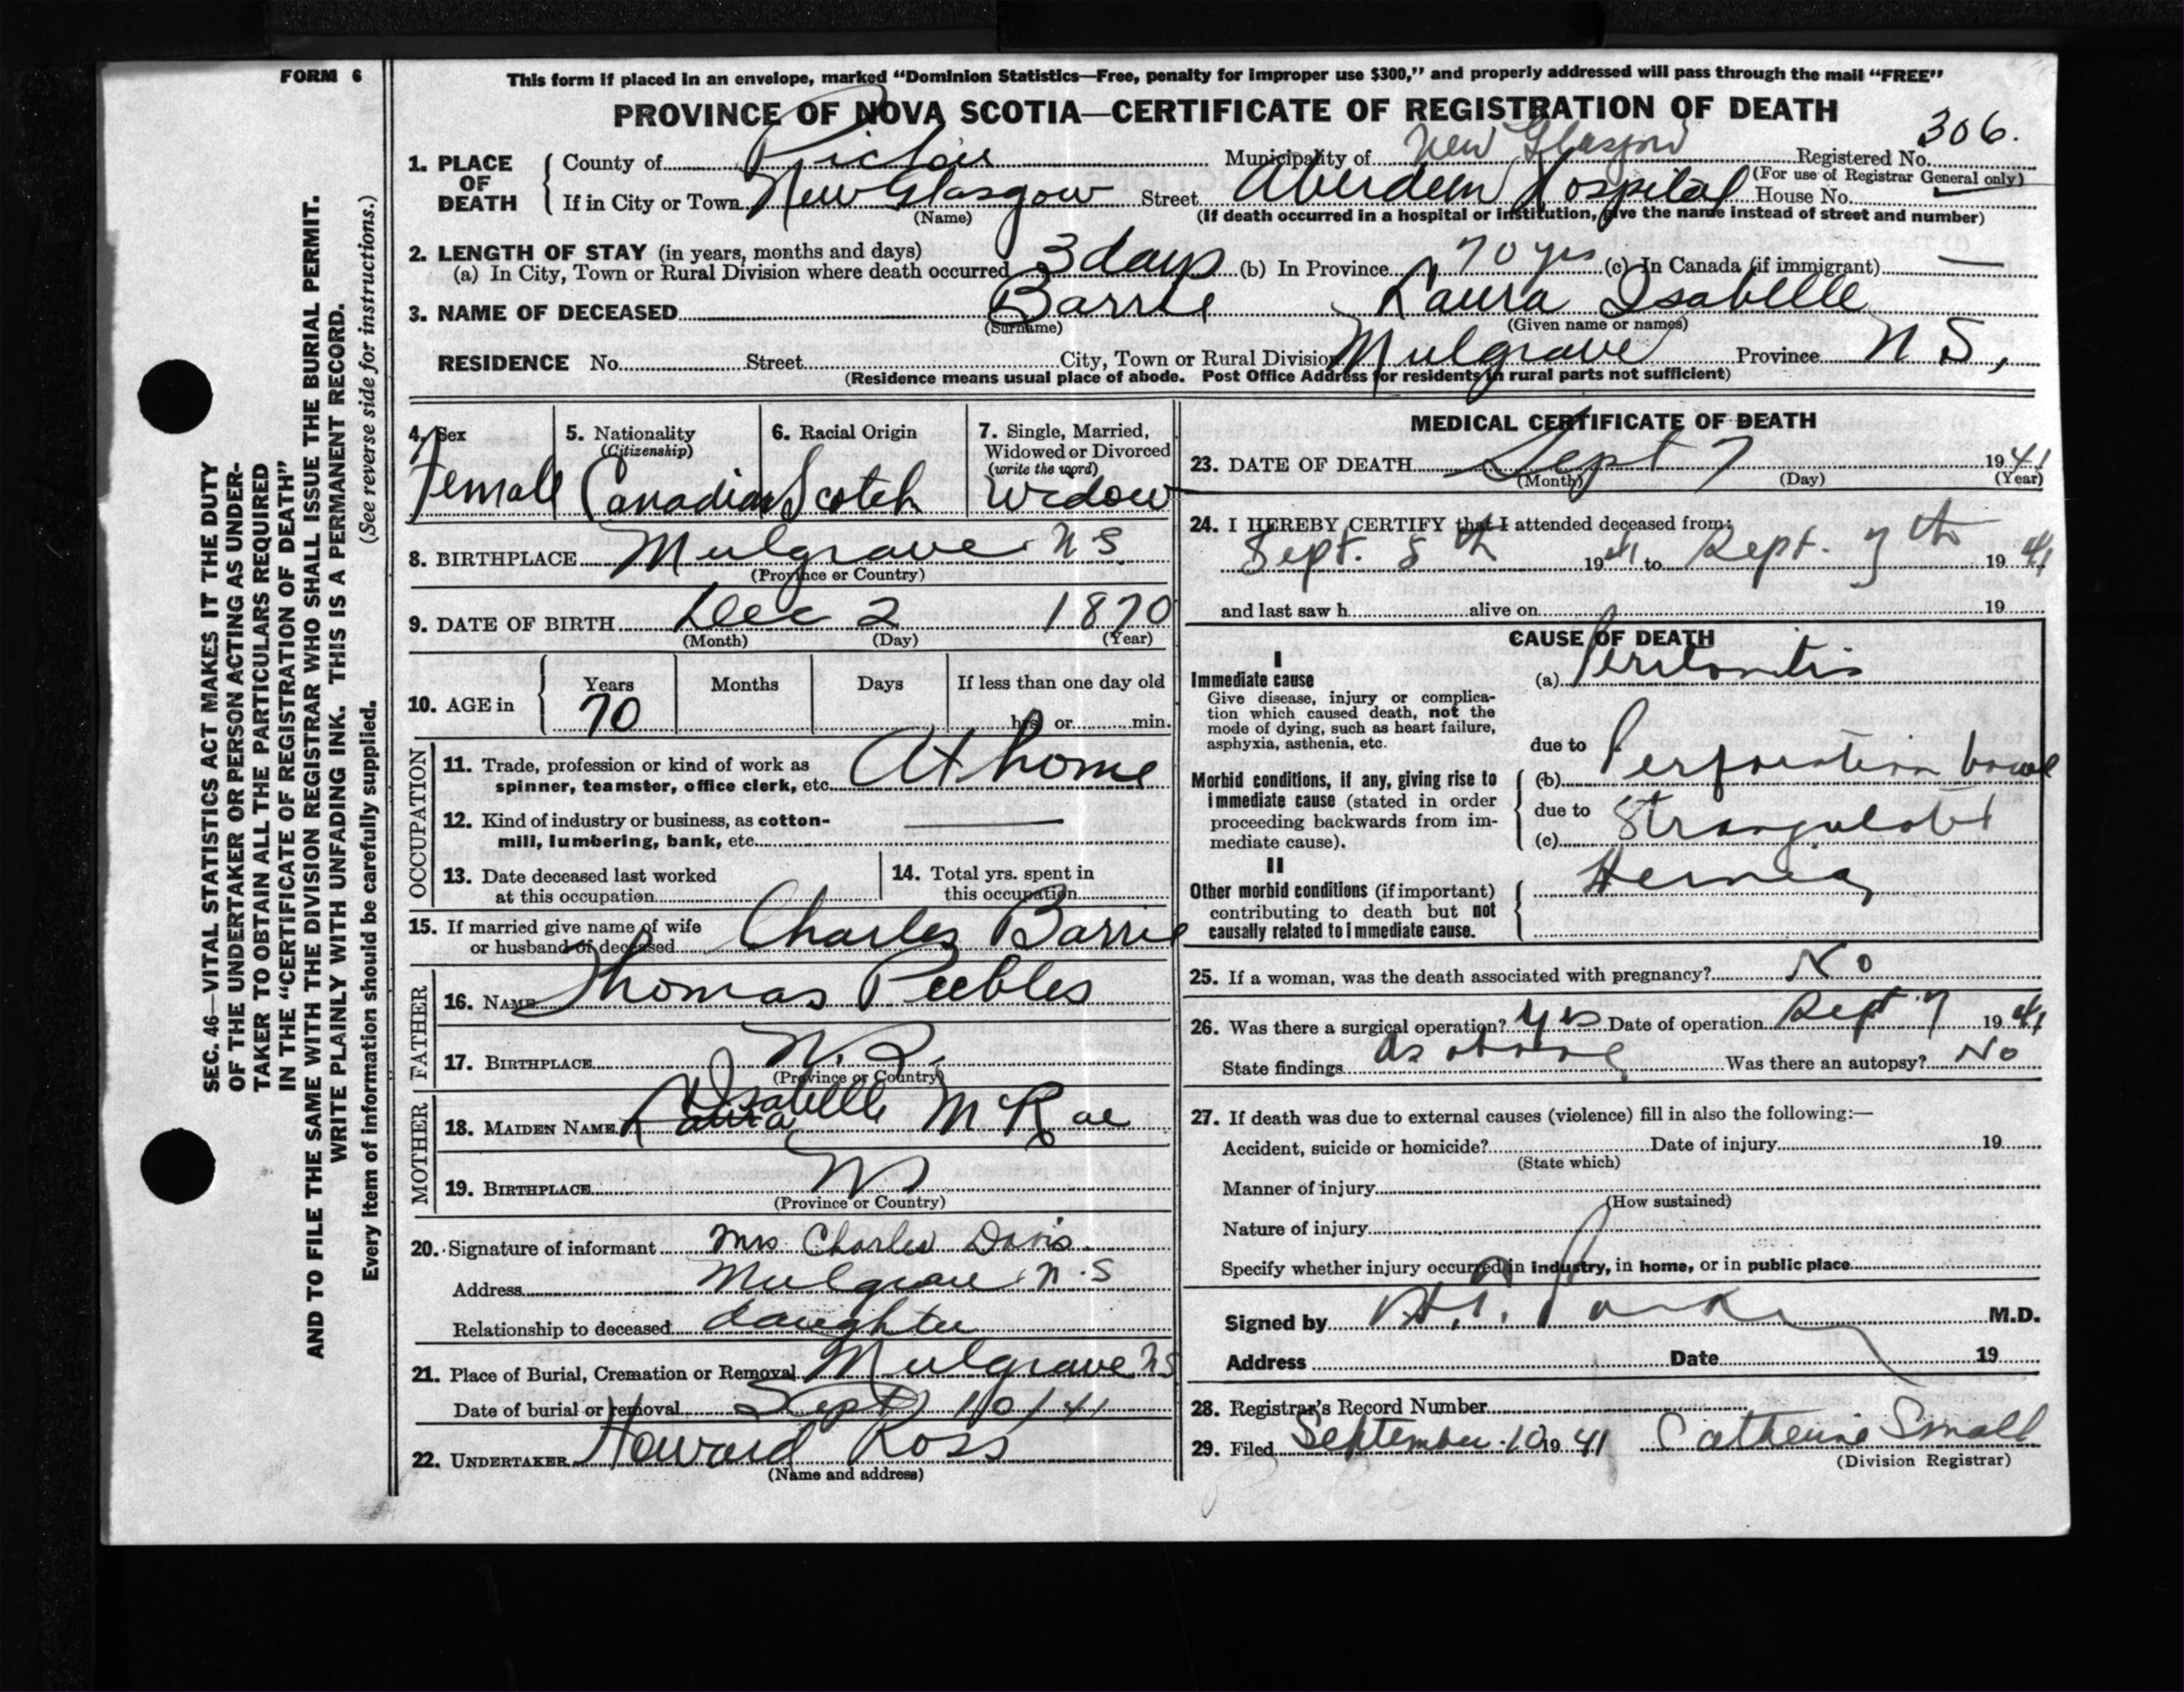 FORM 6
This form if placed in an envelope, marked “Dominion Statistics—Free, penalty for improper use $300,” and properly addressed will pass through the mail “FREE”
PROVINCE OF NOVA SCOTIA—CERTIFICATE OF REGISTRATION OF DEATH
306.
1. PLACE OF DEATH
County of Pictou Municipality of New Glasgow Registered No.
(For use of Registrar General only)
If in City or Town New Glasgow Street Aberdeen Hospital House No. —
(Name) (If death occurred in a hospital or institution, give the name instead of street and number)
2. LENGTH OF STAY (in years, months and days)
(a) In City, Town or Rural Division where death occurred 3 days (b) In Province 70 yrs (c) In Canada (if immigrant) —
3. NAME OF DECEASED Barrie Laura Isabelle
(Surname) (Given name or names)
RESIDENCE No. Street City, Town or Rural Division Mulgrave Province N S,
(Residence means usual place of abode. Post Office Address for residents in rural parts not sufficient)
4. Sex 5. Nationality (Citizenship) 6. Racial Origin 7. Single, Married, Widowed or Divorced (write the word)
Female Canadian Scotch Widow
8. BIRTHPLACE Mulgrave N S
(Province or Country)
9. DATE OF BIRTH Dec 2 1870
(Month) (Day) (Year)
10. AGE in Years Months Days If less than one day old
70 hrs. or min.
OCCUPATION
11. Trade, profession or kind of work as
spinner, teamster, office clerk, etc. At home
12. Kind of industry or business, as cotton-
mill, lumbering, bank, etc. —
13. Date deceased last worked
at this occupation
14. Total yrs. spent in
this occupation
15. If married give name of wife
or husband of deceased Charles Barrie
FATHER
16. NAME Thomas Peebles
17. BIRTHPLACE
(Province or Country)
MOTHER
18. MAIDEN NAME Laura Isabelle McRae
19. BIRTHPLACE
(Province or Country)
20. Signature of informant Mrs Charles Davis
Address Mulgrave N.S
Relationship to deceased daughter
21. Place of Burial, Cremation or Removal Mulgrave NS
Date of burial or removal Sept 10/41
22. UNDERTAKER Howard Ross
(Name and address)
MEDICAL CERTIFICATE OF DEATH
23. DATE OF DEATH Sept 7 1941
(Month) (Day) (Year)
24. I HEREBY CERTIFY that I attended deceased from:
Sept. 5th 1941 to Sept. 7th 1941
and last saw h alive on 19
CAUSE OF DEATH
I
Immediate cause
Give disease, injury or complica-
tion which caused death, not the
mode of dying, such as heart failure,
asphyxia, asthenia, etc.
(a) Peritonitis
due to
Morbid conditions, if any, giving rise to
immediate cause (stated in order
proceeding backwards from im-
mediate cause).
(b) Perforation bowel
due to
(c) Strangulated
II
Other morbid conditions (if important)
contributing to death but not
causally related to immediate cause.
Hernia
25. If a woman, was the death associated with pregnancy? No
26. Was there a surgical operation? Yes Date of operation Sept 7 1941
State findings As above Was there an autopsy? No
27. If death was due to external causes (violence) fill in also the following:—
Accident, suicide or homicide? Date of injury 19
(State which)
Manner of injury
(How sustained)
Nature of injury
Specify whether injury occurred in industry, in home, or in public place
Signed by M.D.
Address Date 19
28. Registrar's Record Number
29. Filed September 10 1941 Catherine Small
(Division Registrar)
SEC. 46—VITAL STATISTICS ACT MAKES IT THE DUTY
OF THE UNDERTAKER OR PERSON ACTING AS UNDER-
TAKER TO OBTAIN ALL THE PARTICULARS REQUIRED
IN THE “CERTIFICATE OF REGISTRATION OF DEATH”
AND TO FILE THE SAME WITH THE DIVISION REGISTRAR WHO SHALL ISSUE THE BURIAL PERMIT.
WRITE PLAINLY WITH UNFADING INK. THIS IS A PERMANENT RECORD.
Every item of information should be carefully supplied. (See reverse side for instructions.)